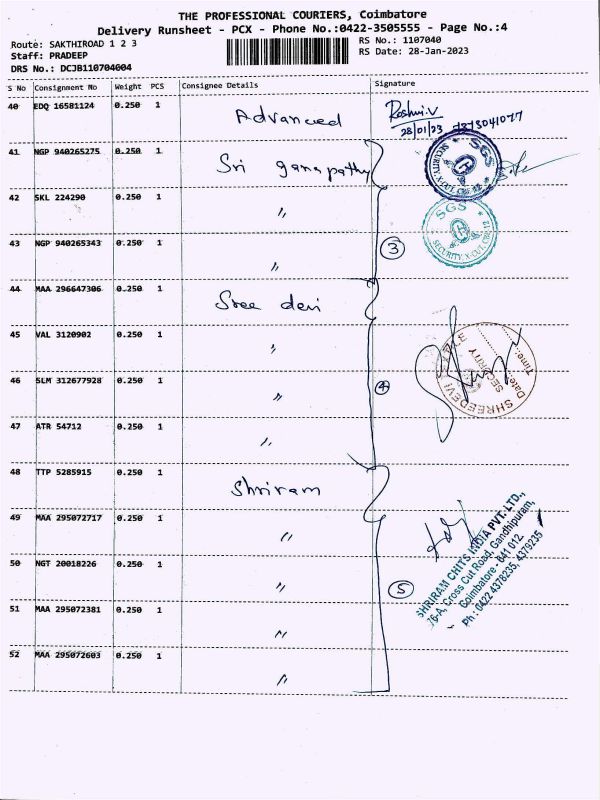 THE PROFESSIONAL COURIERS, Coimbatore
Delivery Runsheet - PCX - Phone No.:0422-3505555 - Page No.:4
Route: SAKTHIROAD 1 2 3
RS No.: 1107040
Staff: PRADEEP
RS Date: 28-Jan-2023
DRS No.: DCJB110704004
S No Consignment No Weight PCS Consignee Details Signature
40 EDQ 16581124 0.250 1 Advanced Reshmi.V
28/01/23 7373041077
41 NGP 940265275 0.250 1 Sri ganapathy
SGS SECURITY, X-CUT, CBE-12
42 SKL 224290 0.250 1 〃
SGS SECURITY, X-CUT, CBE-12
43 NGP 940265343 0.250 1 〃 3
44 MAA 296647306 0.250 1 Sree devi
45 VAL 3120902 0.250 1 〃
SHREEDEVI SECURITY Date: Time:
46 SLM 312677928 0.250 1 〃 4
47 ATR 54712 0.250 1 〃
48 TTP 5285915 0.250 1 Shriram
49 MAA 295072717 0.250 1 〃
50 NGT 20018226 0.250 1 〃 5
SHRIRAM CHITS INDIA PVT. LTD.,
76-A, Cross Cut Road, Gandhipuram,
Coimbatore - 641 012.
Ph : 0422 4378235, 4379235
51 MAA 295072381 0.250 1 〃
52 MAA 295072603 0.250 1 〃